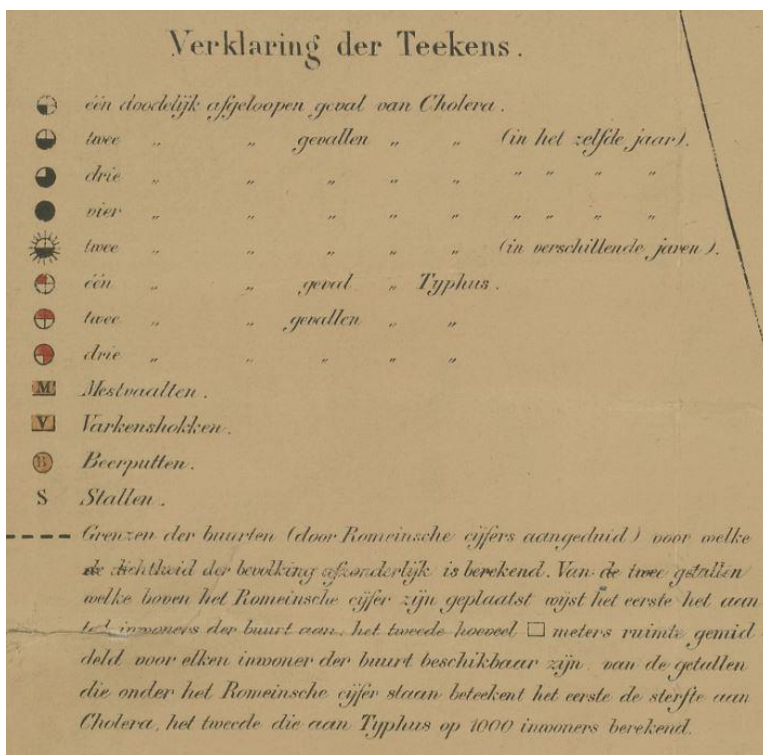 Verklaring der Teekens.
één doodelijk afgeloopen geval van Cholera.
twee „ „ gevallen „ „ (in het zelfde jaar).
drie „ „ „ „ „ „ „ „ „
vier „ „ „ „ „ „ „ „ „
twee „ „ „ „ „ (in verschillende jaren).
één „ „ geval „ Typhus.
twee „ „ gevallen „ „
drie „ „ „ „ „
M Mestvaalten.
V Varkenshokken.
B Beerputten.
S Stallen.
Grenzen der buurten (door Romeinsche cijfers aangeduid) voor welke
de dichtheid der bevolking afzonderlijk is berekend. Van de twee getallen
welke boven het Romeinsche cijfer zijn geplaatst wijst het eerste het aan
tal inwoners der buurt aan, het tweede hoeveel □ meters ruimte gemid
deld voor elken inwoner der buurt beschikbaar zijn. van de getallen
die onder het Romeinsche cijfer staan beteekent het eerste de sterfte aan
Cholera, het tweede die aan Typhus op 1000 inwoners berekend.